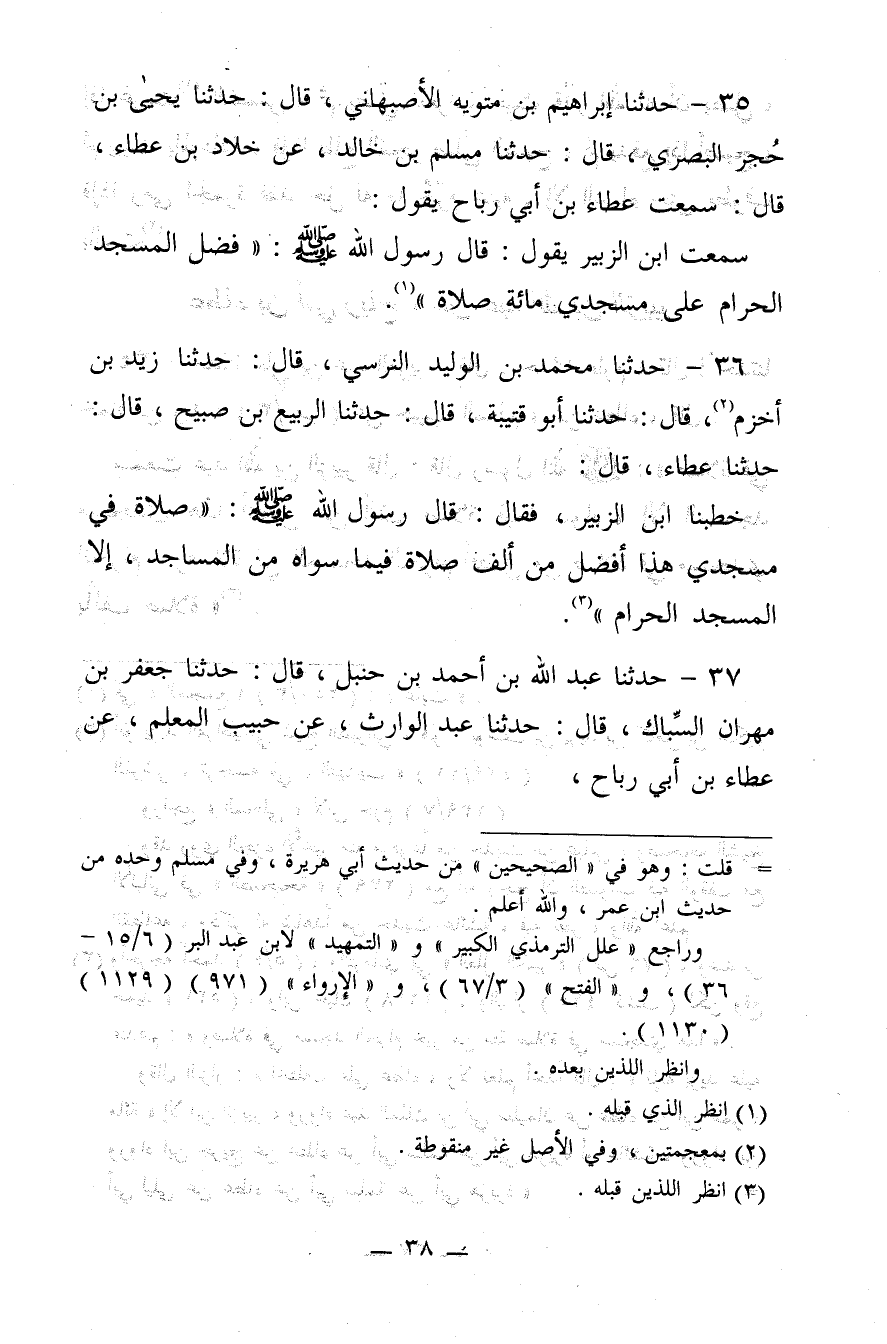 ٣٥ – حدثنا إبراهيم بن متويه الأصبهاني ، قال : حدثنا يحيىٰ بن
حُجر البصري ، قال : حدثنا مسلم بن خالد ، عن خلاد بن عطاء ،
قال : سمعت عطاء بن أبي رباح يقول :
سمعت ابن الزبير يقول : قال رسول الله ﷺ : « فضل المسجد
الحرام على مسجدي مائة صلاة »(١).
٣٦ – حدثنا محمد بن الوليد النرسي ، قال : حدثنا زيد بن
أخزم(٢)، قال : حدثنا أبو قتيبة ، قال : حدثنا الربيع بن صبيح ، قال :
حدثنا عطاء ، قال :
خطبنا ابن الزبير ، فقال : قال رسول الله ﷺ : « صلاة في
مسجدي هذا أفضل من ألف صلاة فيما سواه من المساجد ، إلا
المسجد الحرام »(٣).
٣٧ – حدثنا عبد الله بن أحمد بن حنبل ، قال : حدثنا جعفر بن
مهران السِّباك ، قال : حدثنا عبد الوارث ، عن حبيب المعلم ، عن
عطاء بن أبي رباح ،
= قلت : وهو في « الصحيحين » من حديث أبي هريرة ، وفي مسلم وحده من
حديث ابن عمر ، والله أعلم .
وراجع « علل الترمذي الكبير » و « التمهيد » لابن عبد البر ( ١٥/٦ –
٣٦ ) ، و « الفتح » ( ٦٧/٣ ) ، و « الإرواء » ( ٩٧١ ) ( ١١٢٩ )
( ١١٣٠ ) .
وانظر اللذين بعده .
(١) انظر الذي قبله .
(٢) بمعجمتين ، وفي الأصل غير منقوطة .
(٣) انظر اللذين قبله .
— ٣٨ —